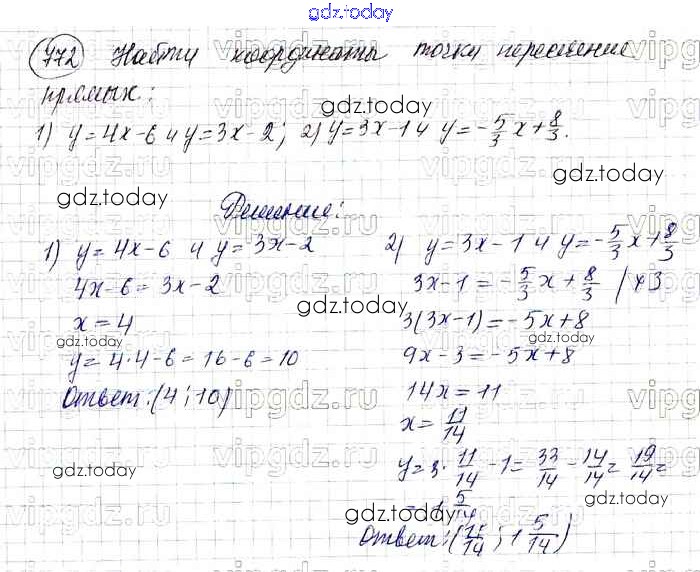 gdz.today
772 Найти координаты точки пересечение
прямых:
gdz.today
1) y=4x-6 и y=3x-2; 2) y=3x-1 и y=-5/3x+8/3.
gdz.today gdz.today
Решение:
1) y=4x-6 и y=3x-2
4x-6=3x-2
x=4
y=4·4-6=16-6=10
Ответ: (4; 10)
gdz.today
gdz.today
2) y=3x-1 и y=-5/3x+8/3
3x-1=-5/3x+8/3 /×3
3(3x-1)=-5x+8
gdz.today
9x-3=-5x+8
14x=11
x=11/14
y=3·11/14-1=33/14-14/14=19/14=
=1 5/14
gdz.today
Ответ: (11/14; 1 5/14)
gdz.today